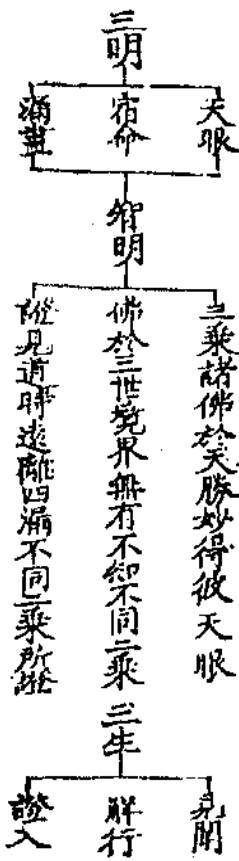 三明
天眼
宿命
漏盡
智明
二乘諸佛於天勝妙得彼天眼
佛於三世境界無有不知不同二乘
證見道時遠離四漏不同二乘所證
三生
見聞
解行
證入